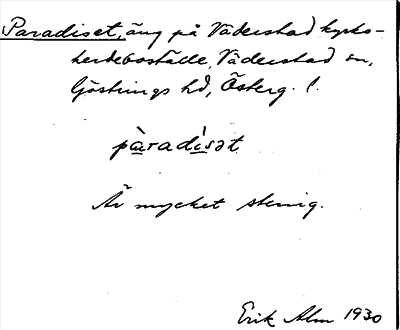 Paradiset, äng på Väderstad kyrko-
herdeboställe, Väderstad sn,
Göstrings hd, Österg. l.
pàradi̍sət
Är mycket stenig.
Erik Alm 1930